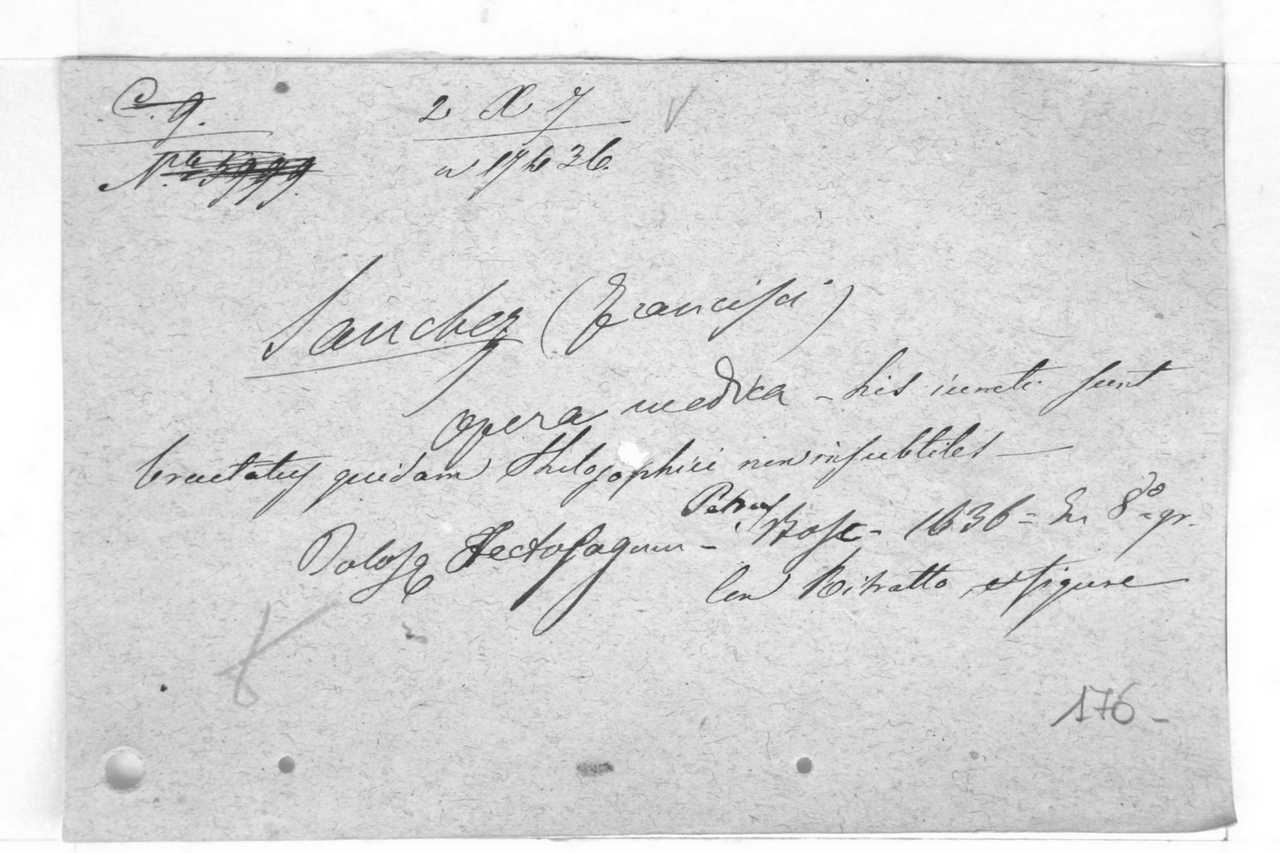 C. 9. 2 X 7
N.
Sanchez (Francisci)
opera medica - his iuncti sunt
tractatus quidam Philosophici non insubtiles -
Petrus
Tolosæ Tectosagum - Bosc - 1636 = In 8.vo gr.
Con Ritratto e figure
176 -